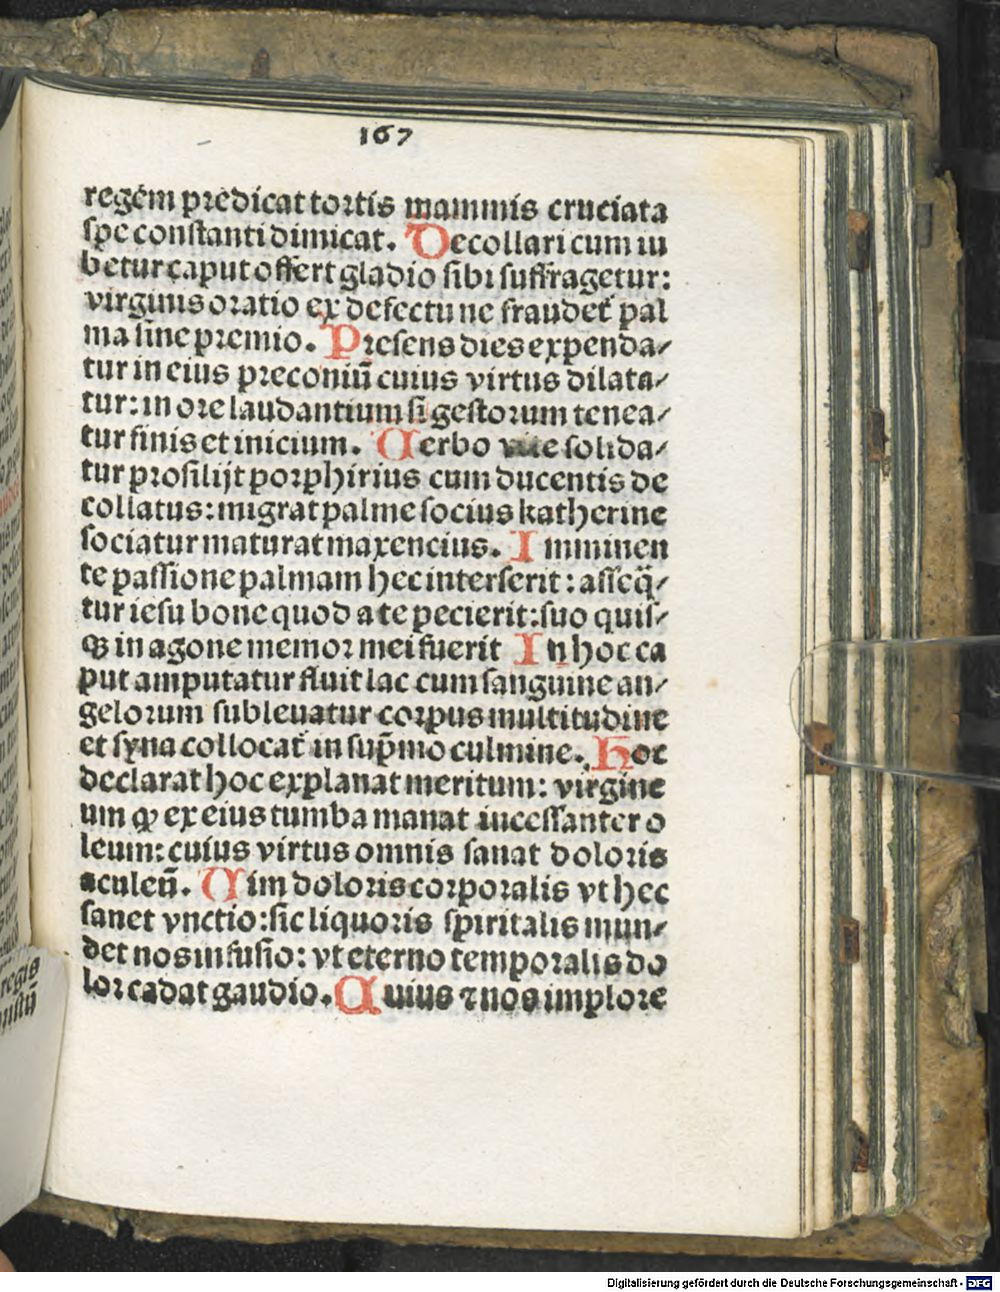 167
regem predicat tortis mammis cruciata
spe constanti dimicat. Decollari cum iu
betur caput offert gladio sibi suffragetur:
virginis oratio ex defectu ne fraudet̄ pal
ma sine premio. Presens dies expenda⸗
tur in eius preconiū cuius virtus dilata⸗
tur: in ore laudantium si gestorum tenea⸗
tur finis et inicium. Uerbo vite solida⸗
tur prosilijt porphirius cum ducentis de
collatus: migrat palme socius katherine
sociatur maturat maxencius. Imminen
te passione palmam hec interserit: asseq̄⸗
tur iesu bone quod a te pecierit: suo quis⸗
qꝫ in agone memor mei fuerit In hoc ca
put amputatur fluit lac cum sanguine an⸗
gelorum subleuatur corpus multitudine
et syna collocat̄ in sup̄mo culmine. Hoc
declarat hoc explanat meritum: virgine
um ꝙ ex eius tumba manat incessanter o
leum: cuius virtus omnis sanat doloris
aculeū. Uim doloris corporalis vt hec
sanet vnctio: sic liquoris spiritalis mun⸗
det nos infusio: vt eterno temporalis do
lor cadat gaudio. Cuius ⁊ nos implore
regis
Digitalisierung gefördert durch die Deutsche Forschungsgemeinschaft - DFG